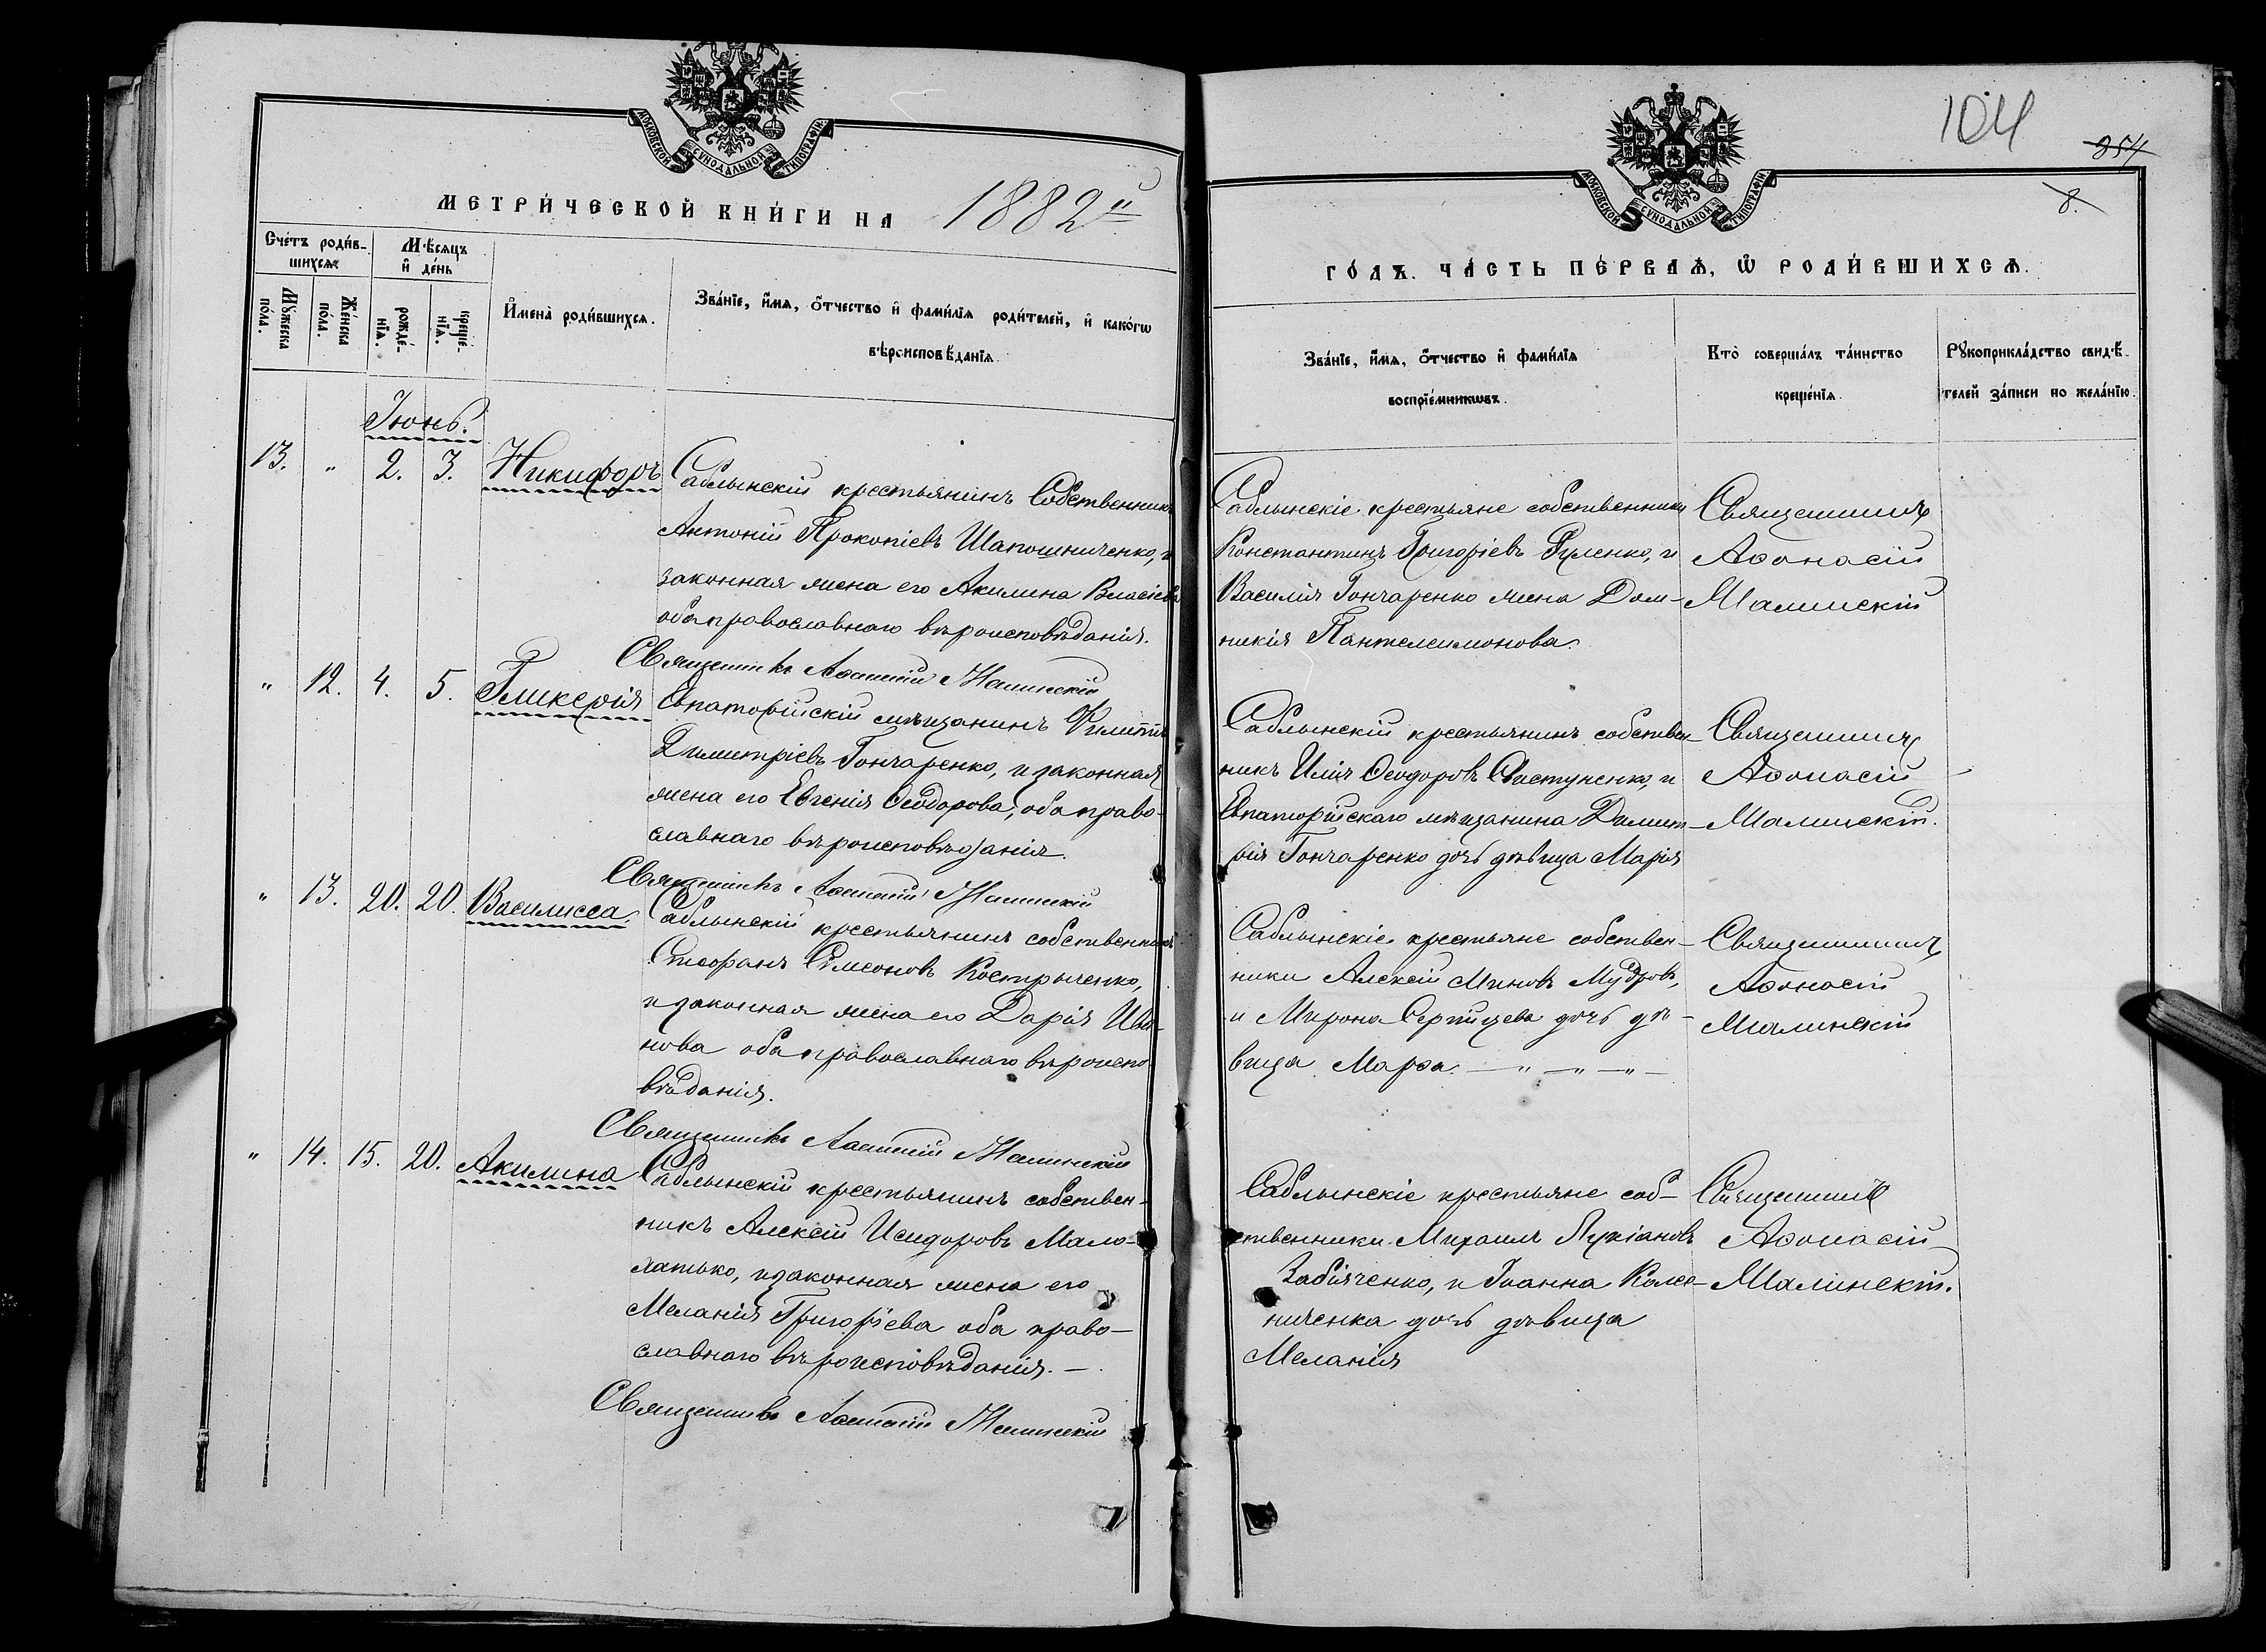 МОСКОВСКОЙ СѴНОДАЛЬНОЙ ТИПОГРАФІИ
МЕТРИ́ЧЕСКОЙ КНИ́ГИ НА 1882й
Сче́тъ роди́в-
шихся.
Мꙋ́жеска
по́ла.
Же́нска
по́ла.
Мѣ́сяцъ
и҆ де́нь
рожде́-
нїѧ.
креще́-
нїѧ.
И҆мена̀ роди́вшихсѧ.
Зва́нїе, и҆́мѧ, ѻ҆́тчество и҆ фами́лїѧ роди́телей, и҆ како́гѡ
вѣроисповѣ́данїѧ.
Іюнь.
13. " 2. 3. Никифоръ
Саблынскій крестьянинъ собственникъ
Антоній Прокопіевъ Шапошниченко, и
законная жена его Акилина Власіева
оба православнаго вѣроисповѣданія.
Священникъ Аѳанасій Малинскій
" 12. 4. 5. Гликерія
Евпаторійскій мѣщанинъ Филиппъ
Димитріевъ Гончаренко, и законная
жена его Евгенія Ѳеодорова, оба право-
славнаго вѣроисповѣданія.
Священникъ Аѳанасій Малинскій
" 13. 20. 20. Василисса
Саблынскій крестьянинъ собственникъ
Стефанъ Симеоновъ Кострыченко,
и законная жена его Дарія Ива-
нова оба православнаго вѣроиспо-
вѣданія.
Священникъ Аѳанасій Малинскій
" 14. 15. 20. Акилина
Саблынскій крестьянинъ собствен-
никъ Алексій Исидоровъ Мало-
латько, и законная жена его
Меланія Григорьева оба право-
славнаго вѣроисповѣданія. —
Священникъ Аѳанасій Малинскій
104
254
8.
МОСКОВСКОЙ СѴНОДАЛЬНОЙ ТИПОГРАФІИ
ГО́ДЪ. ЧА́СТЬ ПЕ́РВАѦ, Ѽ РОДИ́ВШИХСѦ.
Зва́нїе, и҆́мѧ, ѻ҆́тчество и҆ фами́лїѧ
воспрїе́мникѡвъ.
Кто̀ соверша́лъ та́инство
креще́нїѧ.
Рꙋкоприкла́дство свидѣ́-
телей за́писи по жела́нїю.
Саблынскіе крестьяне собственники
Константинъ Григоріевъ Гуленко, и
Василія Гончаренко жена Дом-
никія Пантелеимонова.
Священникъ
Аѳонасій
Малинскій
Саблынскій крестьянинъ собствен-
никъ Илія Ѳеодоровъ Свистуненко, и
Евпаторійскаго мѣщанина Димит-
рія Гончаренко дочь дѣвица Марія
Священникъ
Аѳонасій
Малинскій.
Саблынскіе крестьяне собствен-
ники Алексій Миновъ Мудровъ,
и Мирона дочь дѣ-
вица Марѳа. — " — " — " —
Священникъ
Аѳонасій
Малинскій
Саблынскіе крестьяне соб-
ственники Михаилъ Лукіановъ
Забіяченко, и Іоанна Колес-
ниченка дочь дѣвица
Меланія
Священникъ
Аѳонасій
Малинскій.